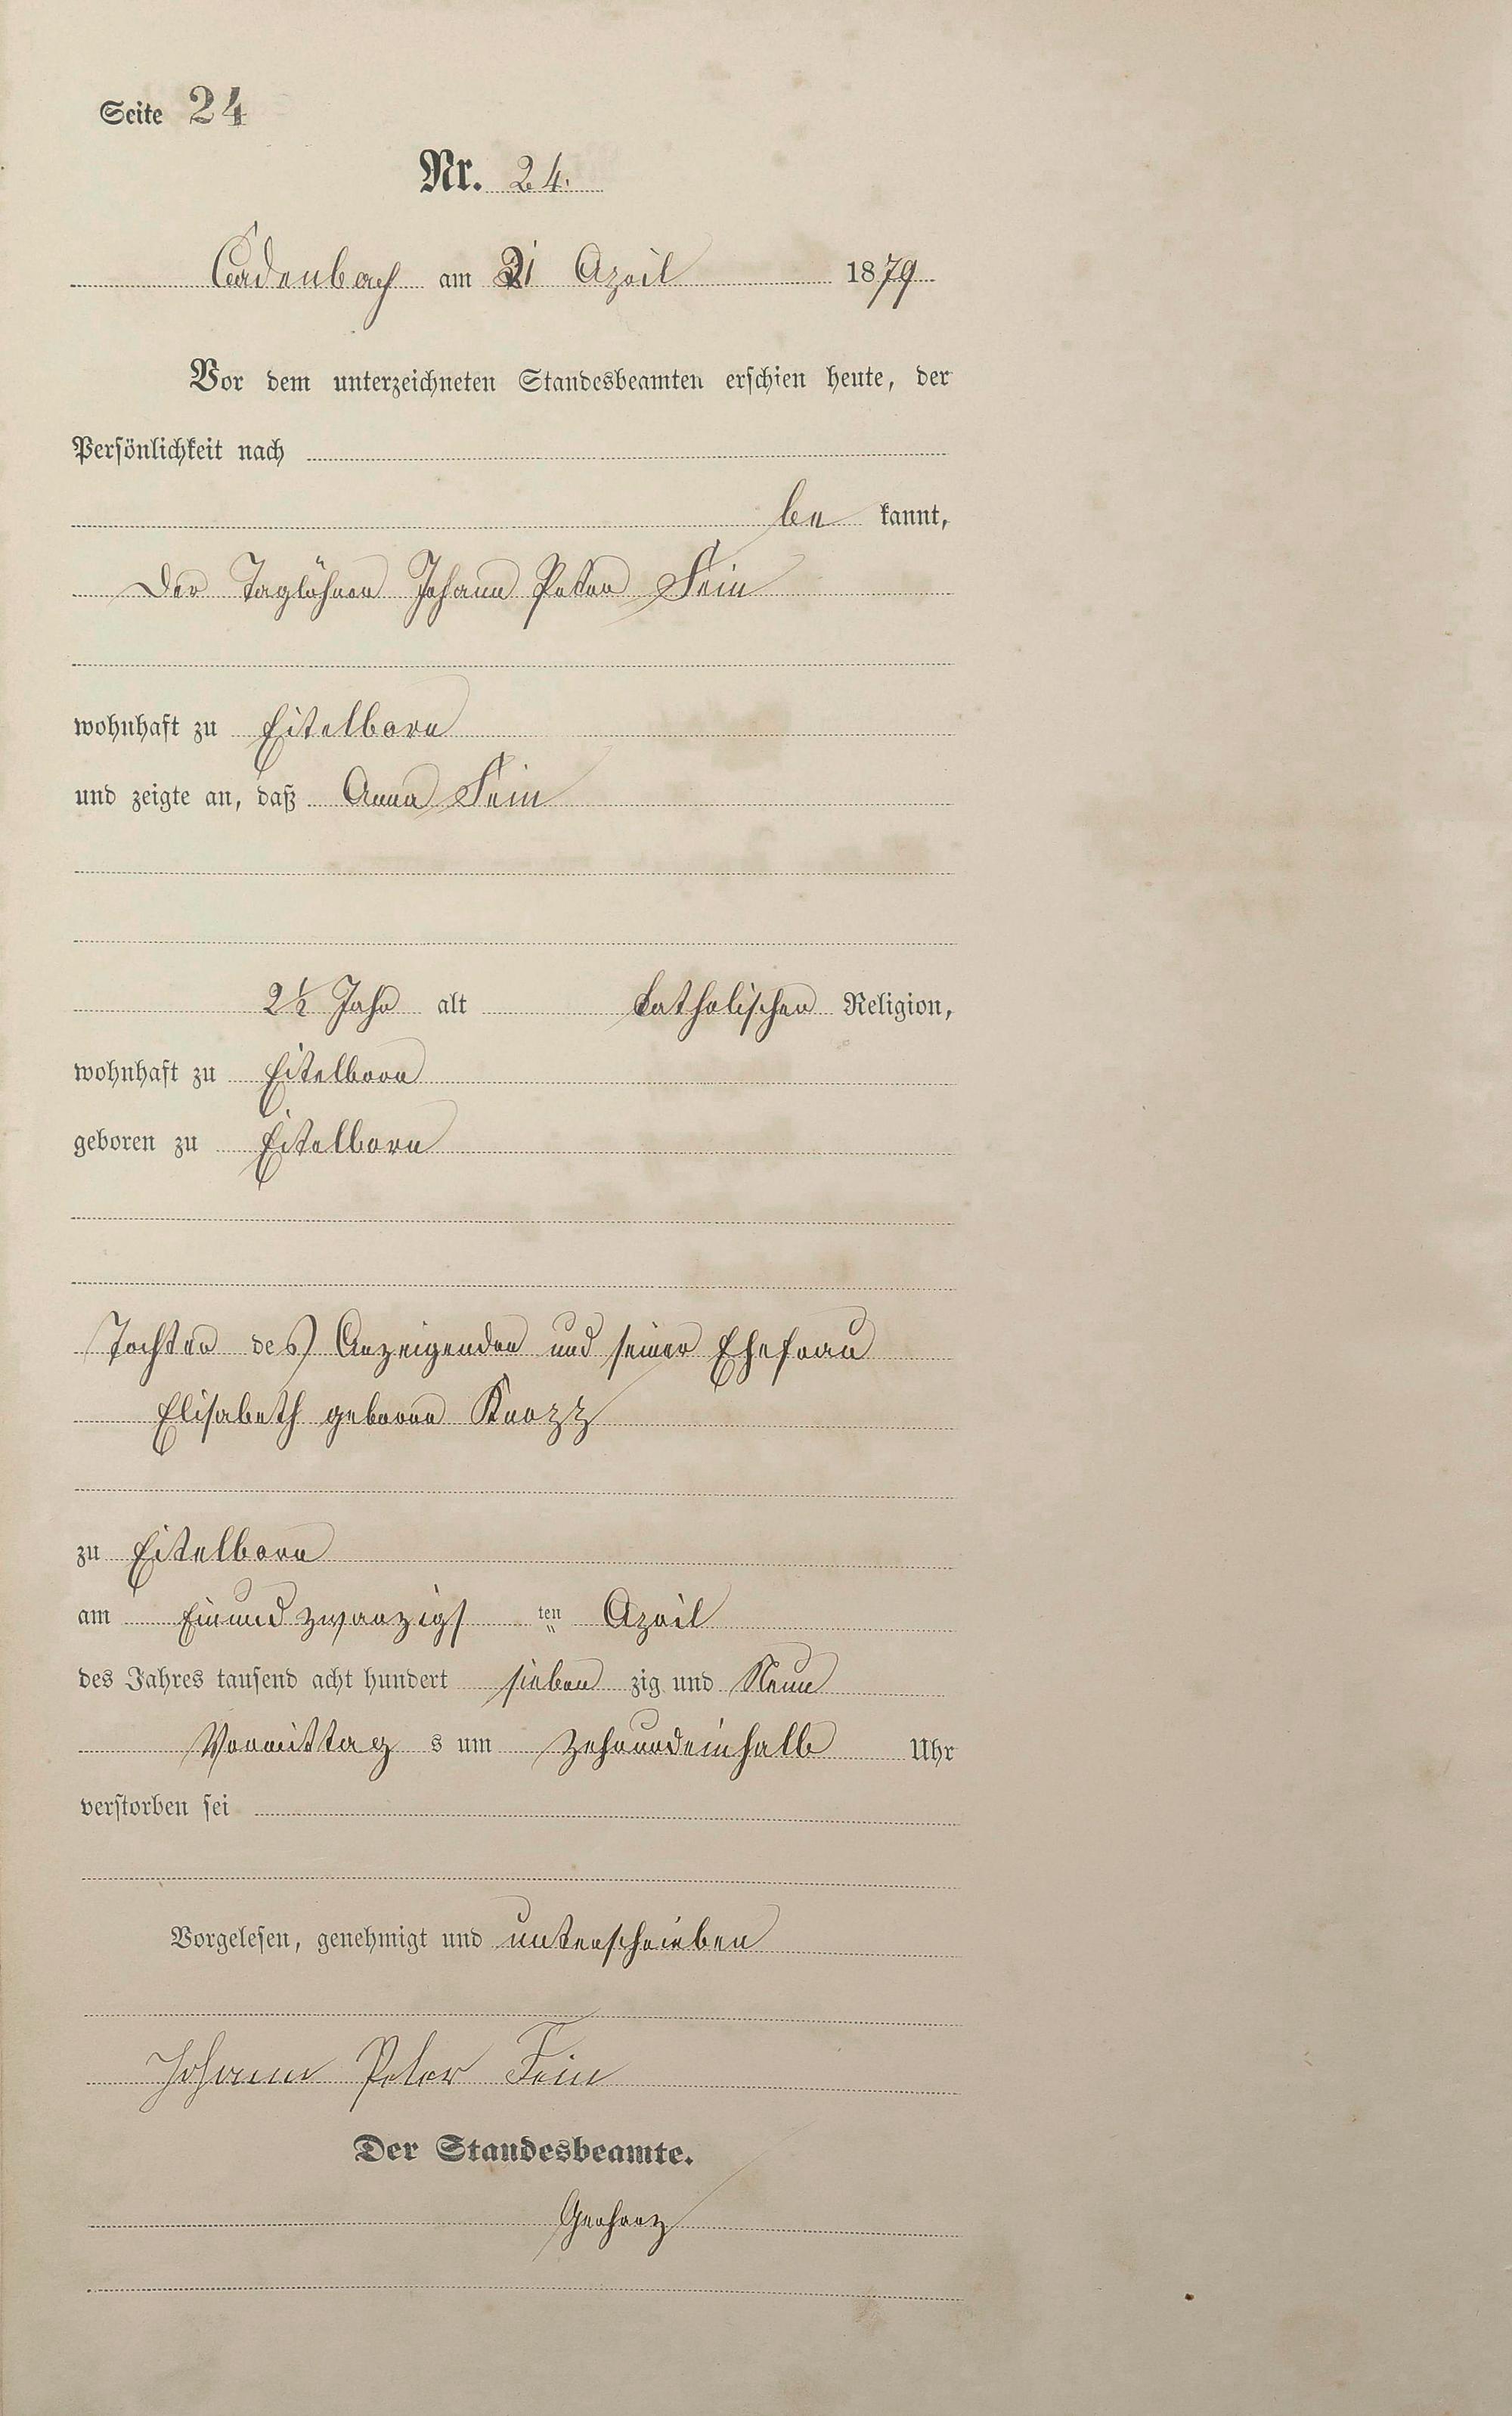 Seite 24
Nr. 24.
Cadenbach am 21 April 1879
Vor dem unterzeichneten Standesbeamten erschien heute, der
Persönlichkeit nach
be kannt,
Der Taglöhner Johann Peter Fein
wohnhaft zu Eitelborn
und zeigte an, daß Anna Fein
2½ Jahr alt katholischer Religion,
wohnhaft zu Eitelborn
geboren zu Eitelborn
Tochter des Anzeigenden und seiner Ehefrau
Elisabeth geborne Knopp
zu Eitelborn
am Einundzwanzigs ten April
des Jahres tausend acht hundert sieben zig und Neun
Vormittag s um Zehnundeinhalb Uhr
verstorben sei
Vorgelesen, genehmigt und unterschrieben
Johann Peter Fein
Der Standesbeamte.
Gerharz